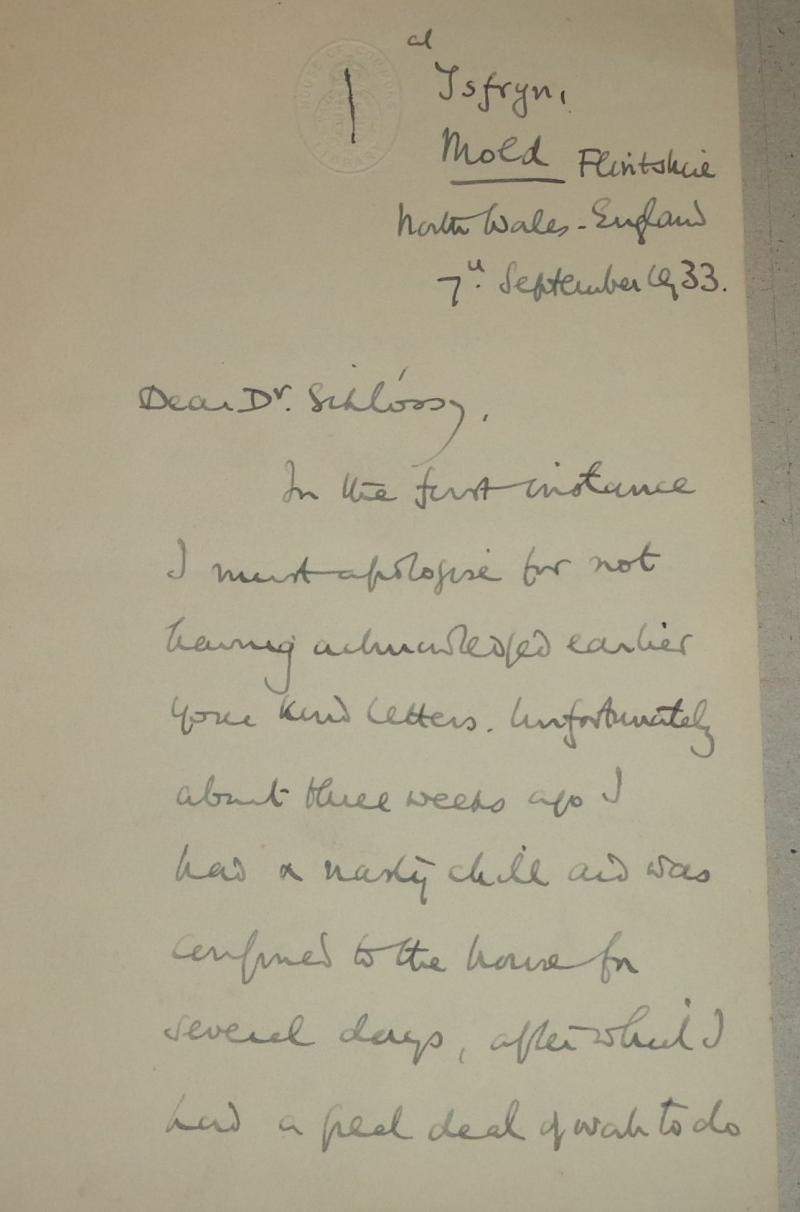 at
Isfryn,
Mold Flintshire
North Wales - England
7th September 1933.
HOUSE OF COMMONS LIBRARY
Dear Dr. Schlóssy,
In the first instance
I must apologise for not
having acknowledged earlier
your kind letters. Unfortunately
about three weeks ago I
had a nasty chill and was
confined to the house for
several days, after which I
had a great deal of work to do